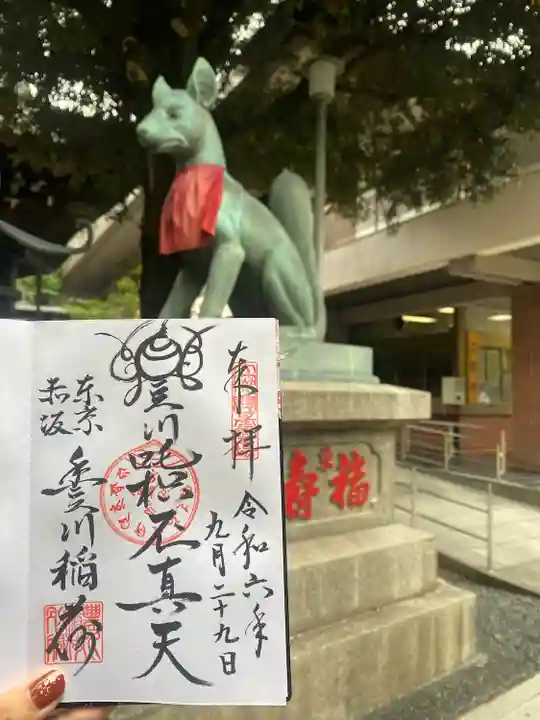 奉拝
令和六年
九月二十九日
豊川吒枳尼真天
東京
赤坂
豊川稲荷
福壽